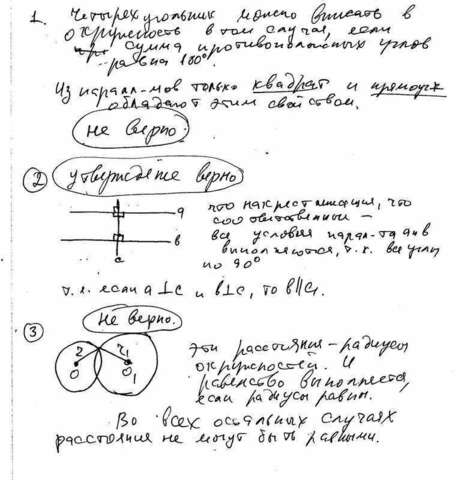 1. Четырехугольник можно вписать в
окружность в том случа, если
сумма противоположных углов
равна 180°.
Из парал-мов только квадрат и прямоуг
обладают этим свойством.
не верно.
2 утверждение верно
а
в
с
что накрест лежащие, что
соответственные –
все условия парал-та а и в
выполняются, т.к. все углы
по 90°
т.е. если a⊥c и b⊥c, то b∥a.
3 Не верно.
2 r₁
O O₁
эти расстояния – радиусы
окружностей. И
равенство выполняется,
если радиусы равны.
Во всех остальных случаях
расстояние не могут быть равными.